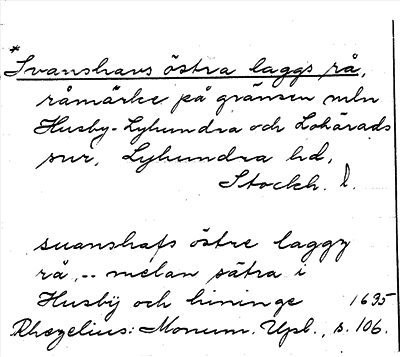 *Svanshavs östra laggs rå,
råmärke på gränsen mln
Husby-Lyhundra och Lohärads
snr, Lyhundra hd,
Stockh. l.
suanshafs östre laggz
rå, .. melan sätra i
Husbÿ och hininge 1635
Rhezelius: Monum. Upl., s. 106.